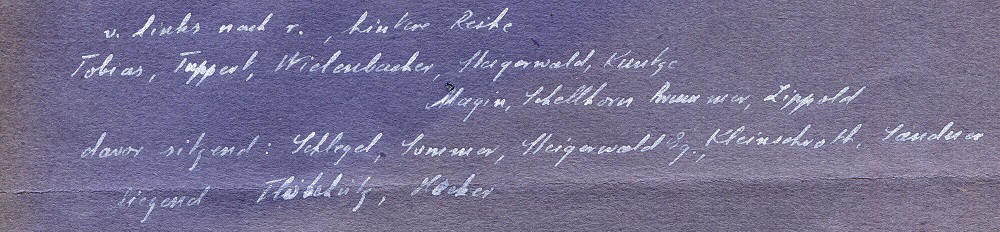 v. links nach r., hintere Reihe
Tobias, Tuppert, Wielenbacher, Steigerwald, Kuntze
Magin, Schellhorn Brummer, Lippold
davor sitzend: Schlegel, Sommer, Steigerwald Eg., Kleinschroth, Sandner
liegend Flöschütz, Hocker